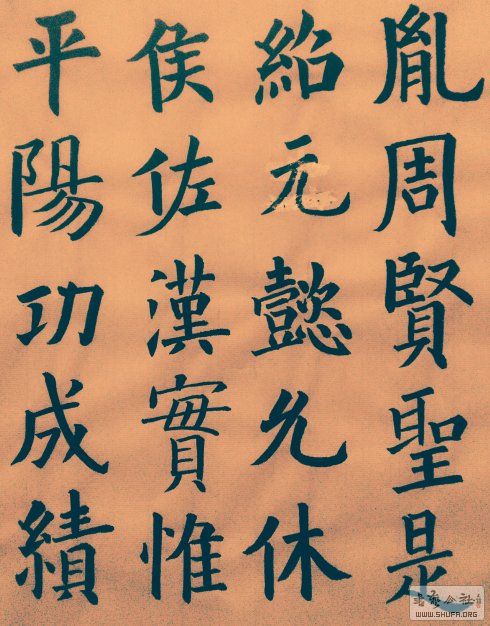 胤周賢聖是
紹元懿允休
侯佐漢實惟
平陽功成績
WWW.SHUFA.ORG